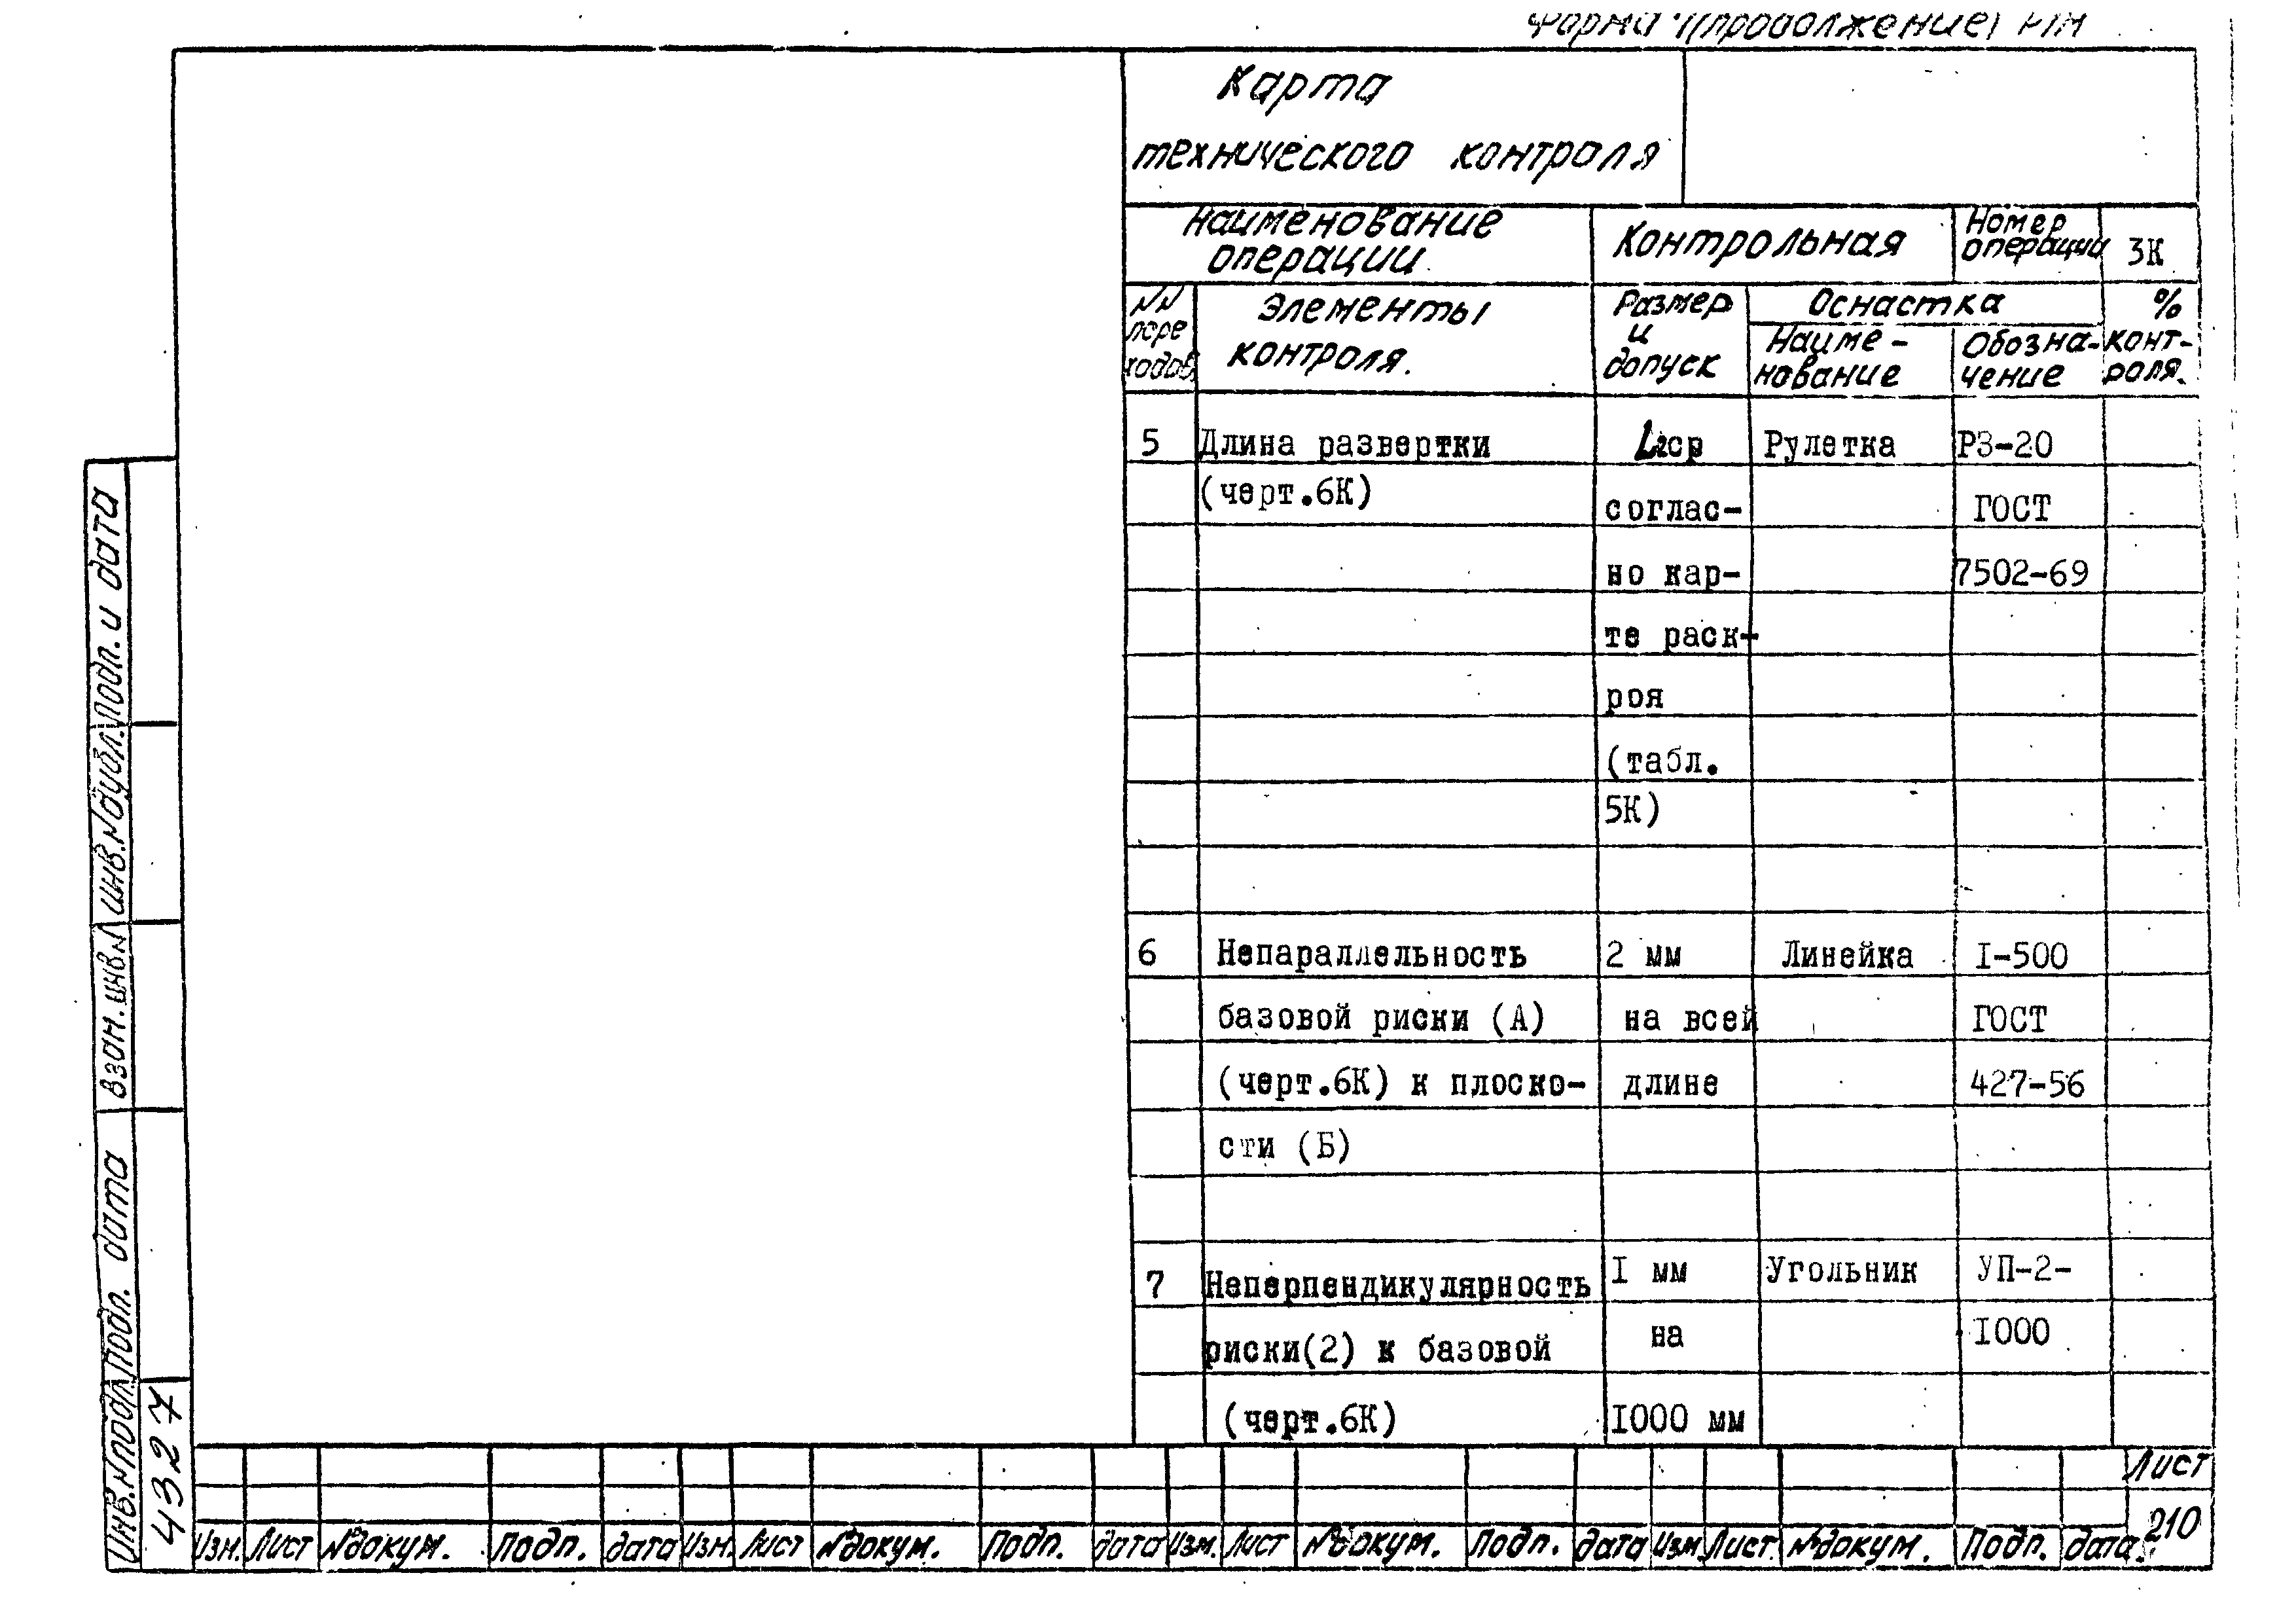 (продолжение) РТМ
Карта
технического контроля
Наименование
операции
Контрольная
Номер
операции
3К
NN
пере
ходов
Элементы
контроля.
Размер
и
допуск
Оснастка
Наиме-
нование
Обозна-
чение
%
конт-
роля.
5 Длина развертки L2ср Рулетка РЗ-20
(черт.6К) соглас- ГОСТ
но кар- 7502-69
те раск-
роя
(табл.
5К)
6 Непараллельность 2 мм Линейка I-500
базовой риски (А) на всей ГОСТ
(черт.6К) к плоско- длине 427-56
сти (Б)
7 Неперпендикулярность I мм Угольник УП-2-
риски(2) к базовой на I000
(черт.6К) I000 мм
Подп. и дата
Инв.N дубл.
Взам.инв.N
Подп. дата
Инв.N подл.
4327
Изм. Лист №докум. Подп. дата Изм. Лист №докум. Подп. дата Изм. Лист №докум. Подп. дата Изм Лист. №докум. Подп. дата.
Лист
210